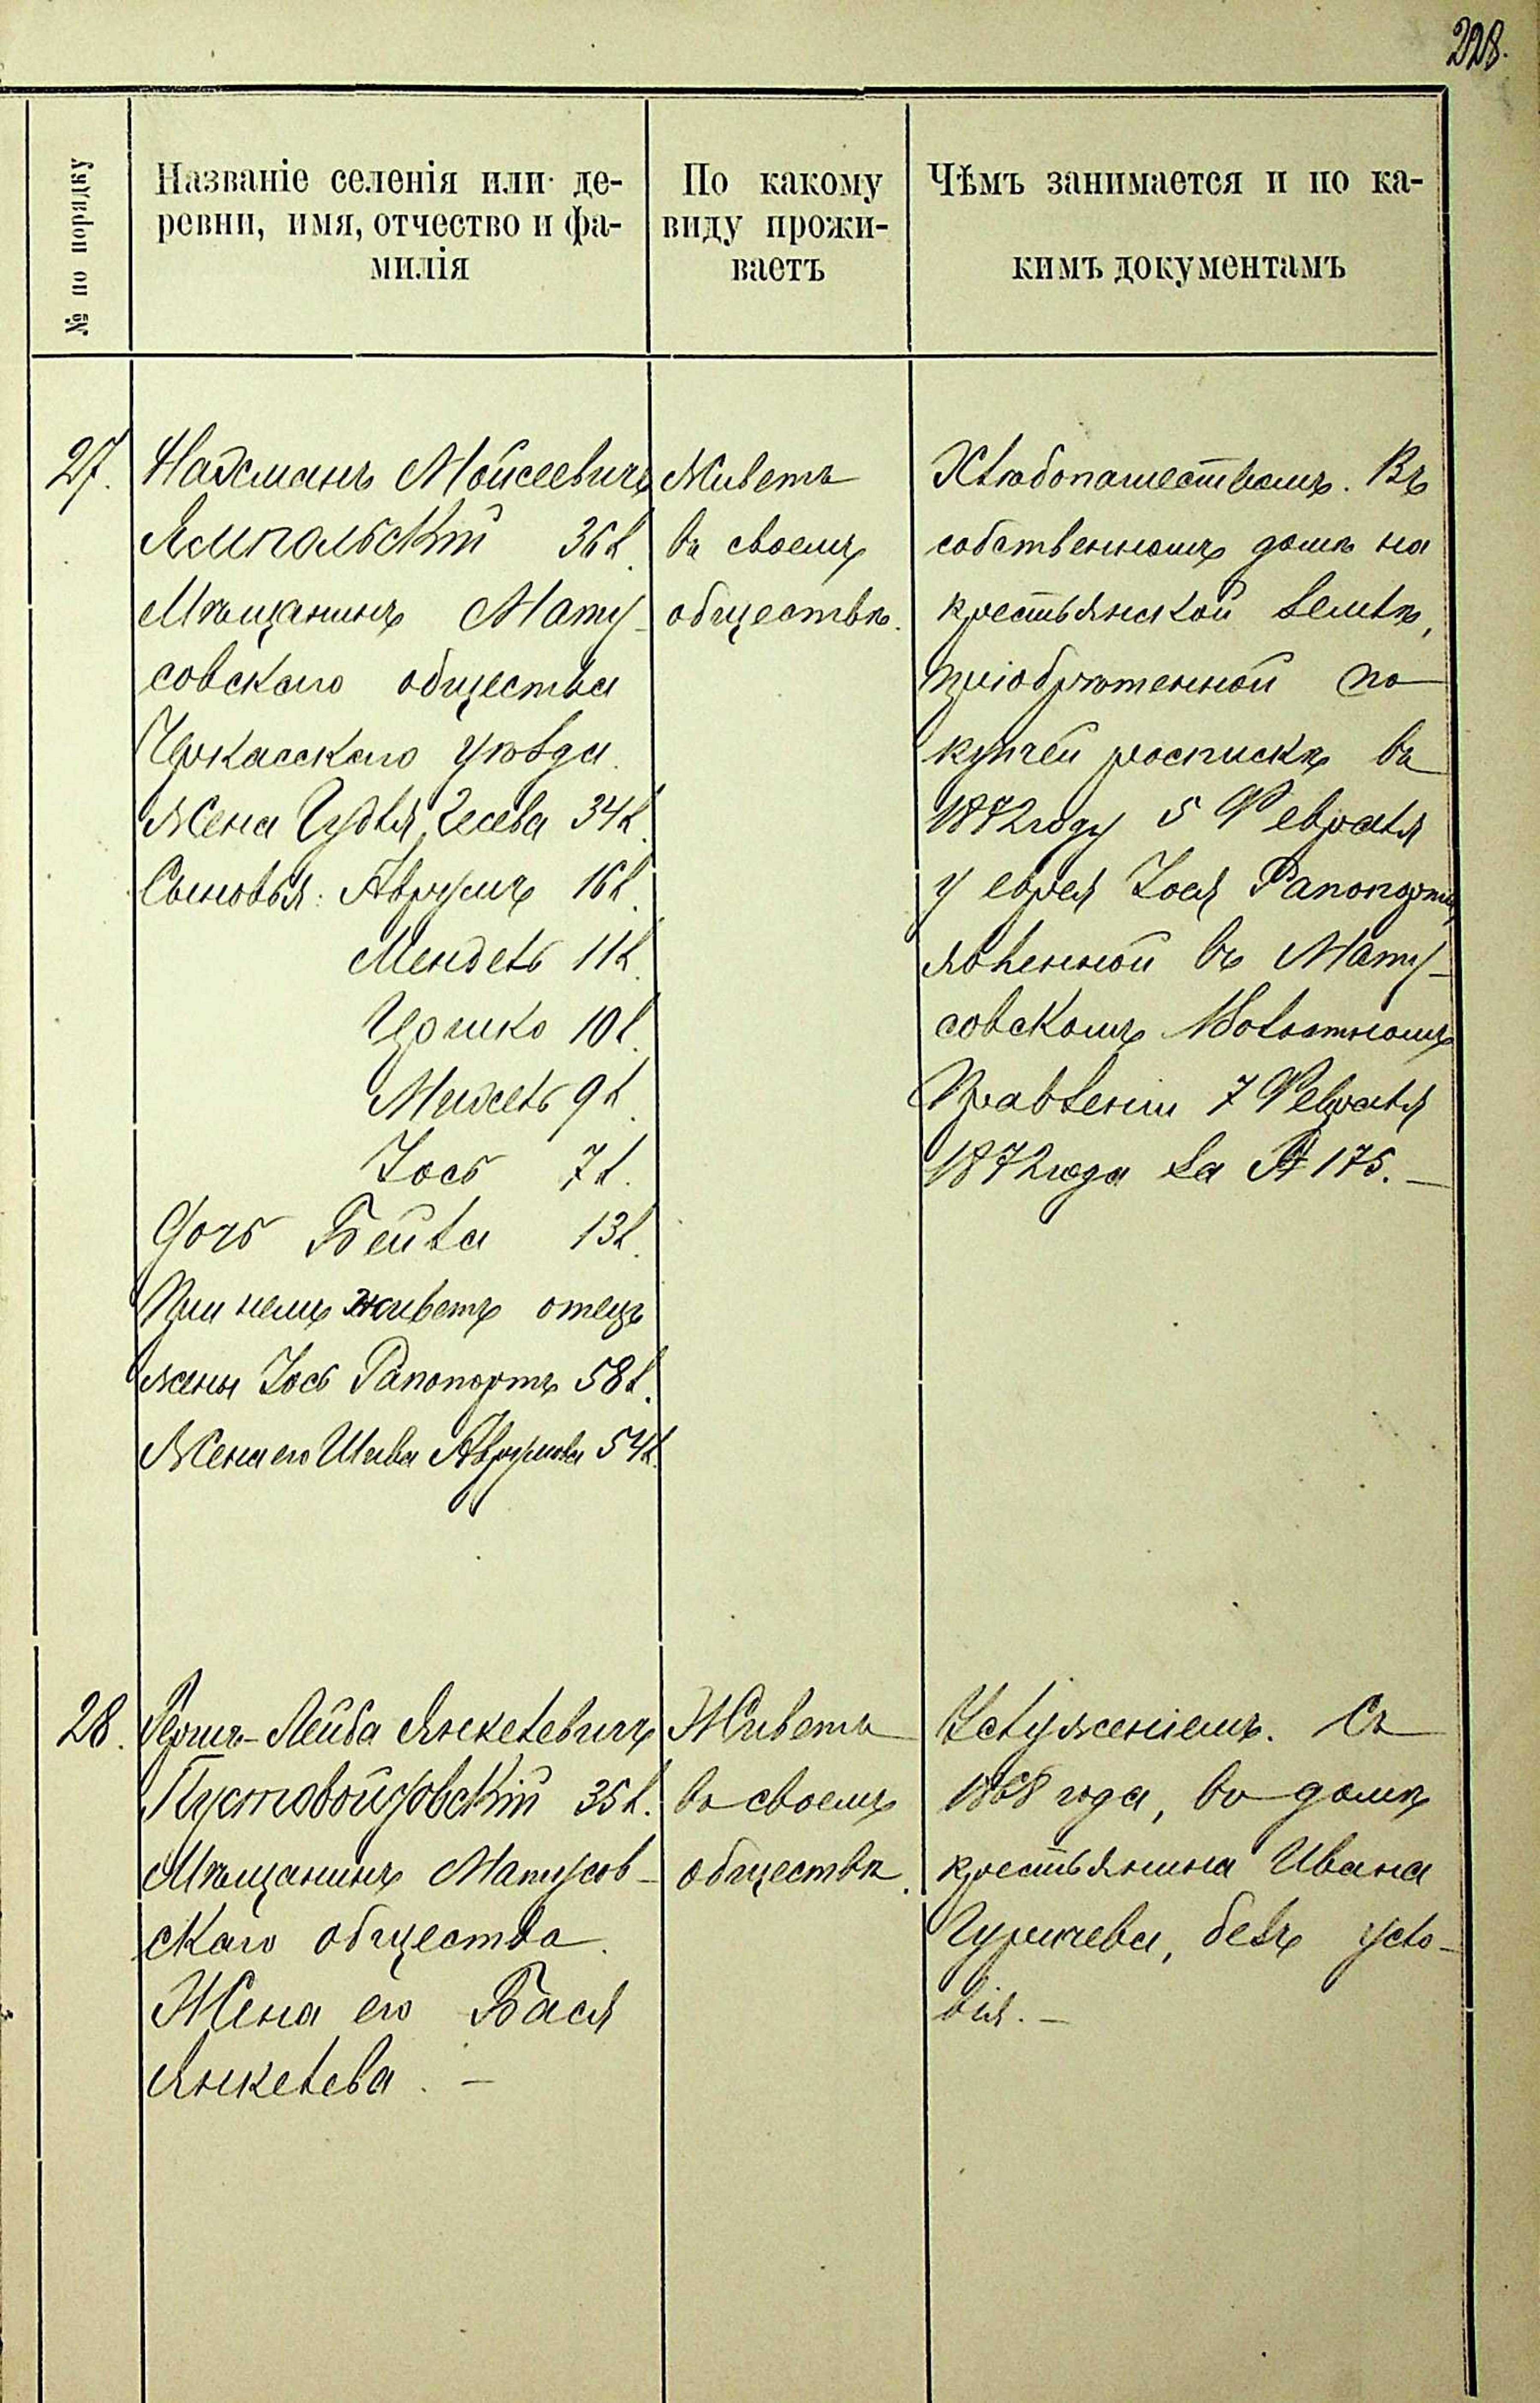 228.
№ по порядку
Названіе селенія или де-
ревни, имя, отчество и фа-
милія
По какому
виду прожи-
ваетъ
Чѣмъ занимается и по ка-
кимъ документамъ
27.
Нахманъ Мойсеевичъ
Ямпольскій 36 л.
Мѣщанинъ Мату-
совскаго общества
Черкасскаго уѣзда.
Жена Гудля, 34 л.
Сыновья: Аврумъ 16 л.
Мендель 11 л.
Ицко 10 л.
Михель 9 л.
Іось 7 л.
Дочь Бейла 13 л.
При немъ живетъ отецъ
жены Іось Рапопортъ 58 л.
Жена его Шива Аврумова 54 л.
Живетъ
въ своемъ
обществѣ.
Хлѣбопашествомъ. Въ
собственномъ домѣ на
крестьянской землѣ,
пріобрѣтенной по
купчей роспискѣ въ
1872 году 5 Февраля
у еврея Іося Рапопорта,
явленной въ Мату-
совскомъ Волостномъ
Правленіи 7 Февраля
1872 года за № 175. —
28.
Гершъ-Лейба Янкелевичъ
Пустовойтовскій 35 л.
Мѣщанинъ Матусов-
скаго общества.
Жена его Бася
Янкелева. —
Живетъ
въ своемъ
обществѣ.
Услуженіемъ. Съ
1868 года, въ домѣ
крестьянина Ивана
безъ усло-
вія. —